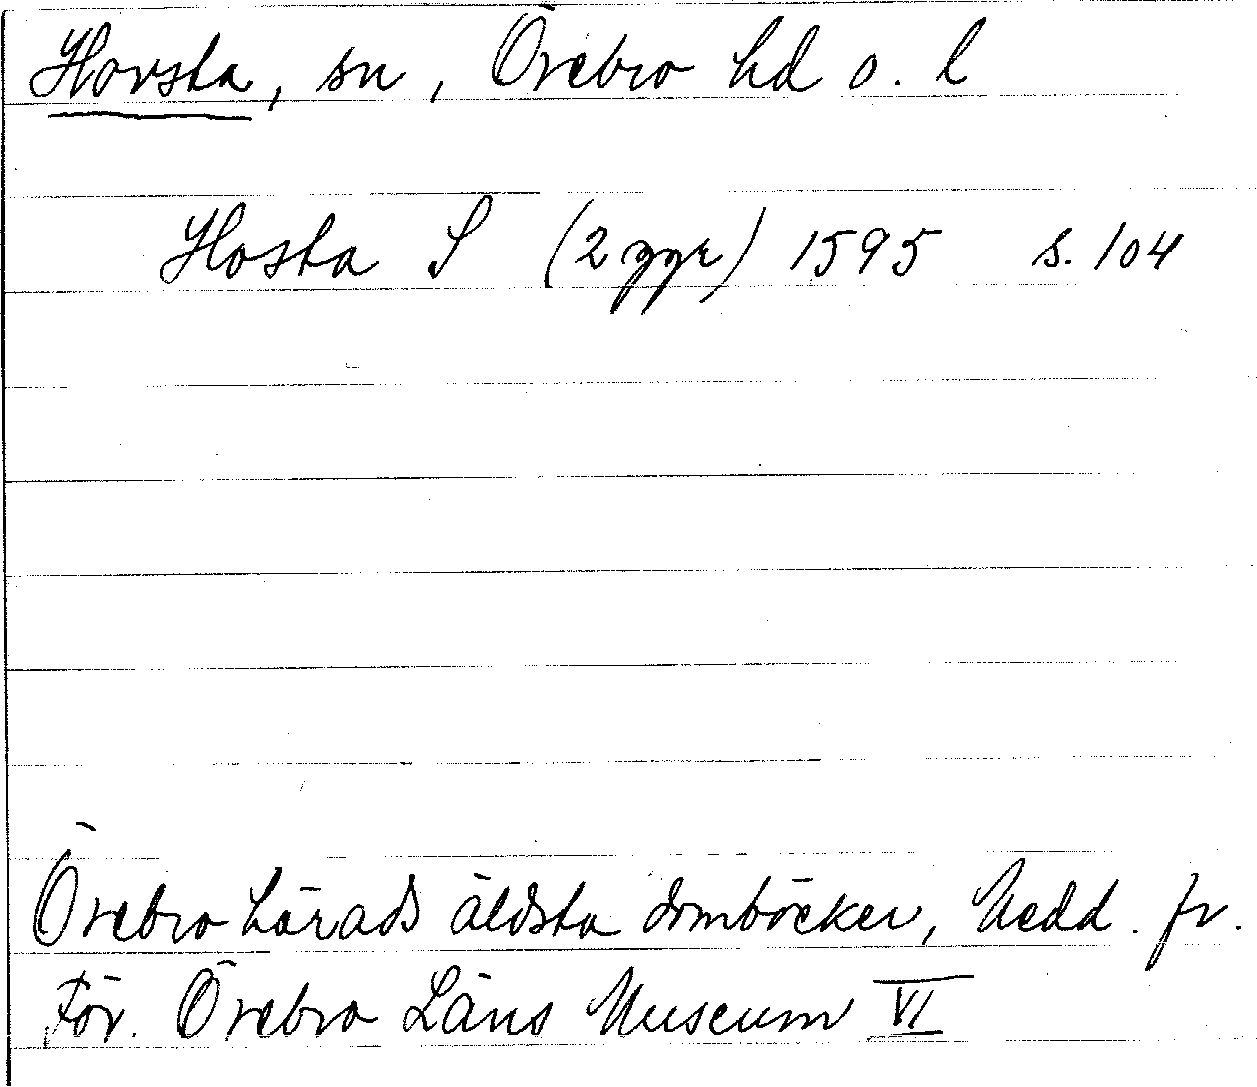 Hovsta, sn, Örebro hd o. l
Hosta S (2 ggr) 1595 s. 104
Örebro härads äldsta domböcker, Medd. fr.
För. Örebro Läns Museum VI